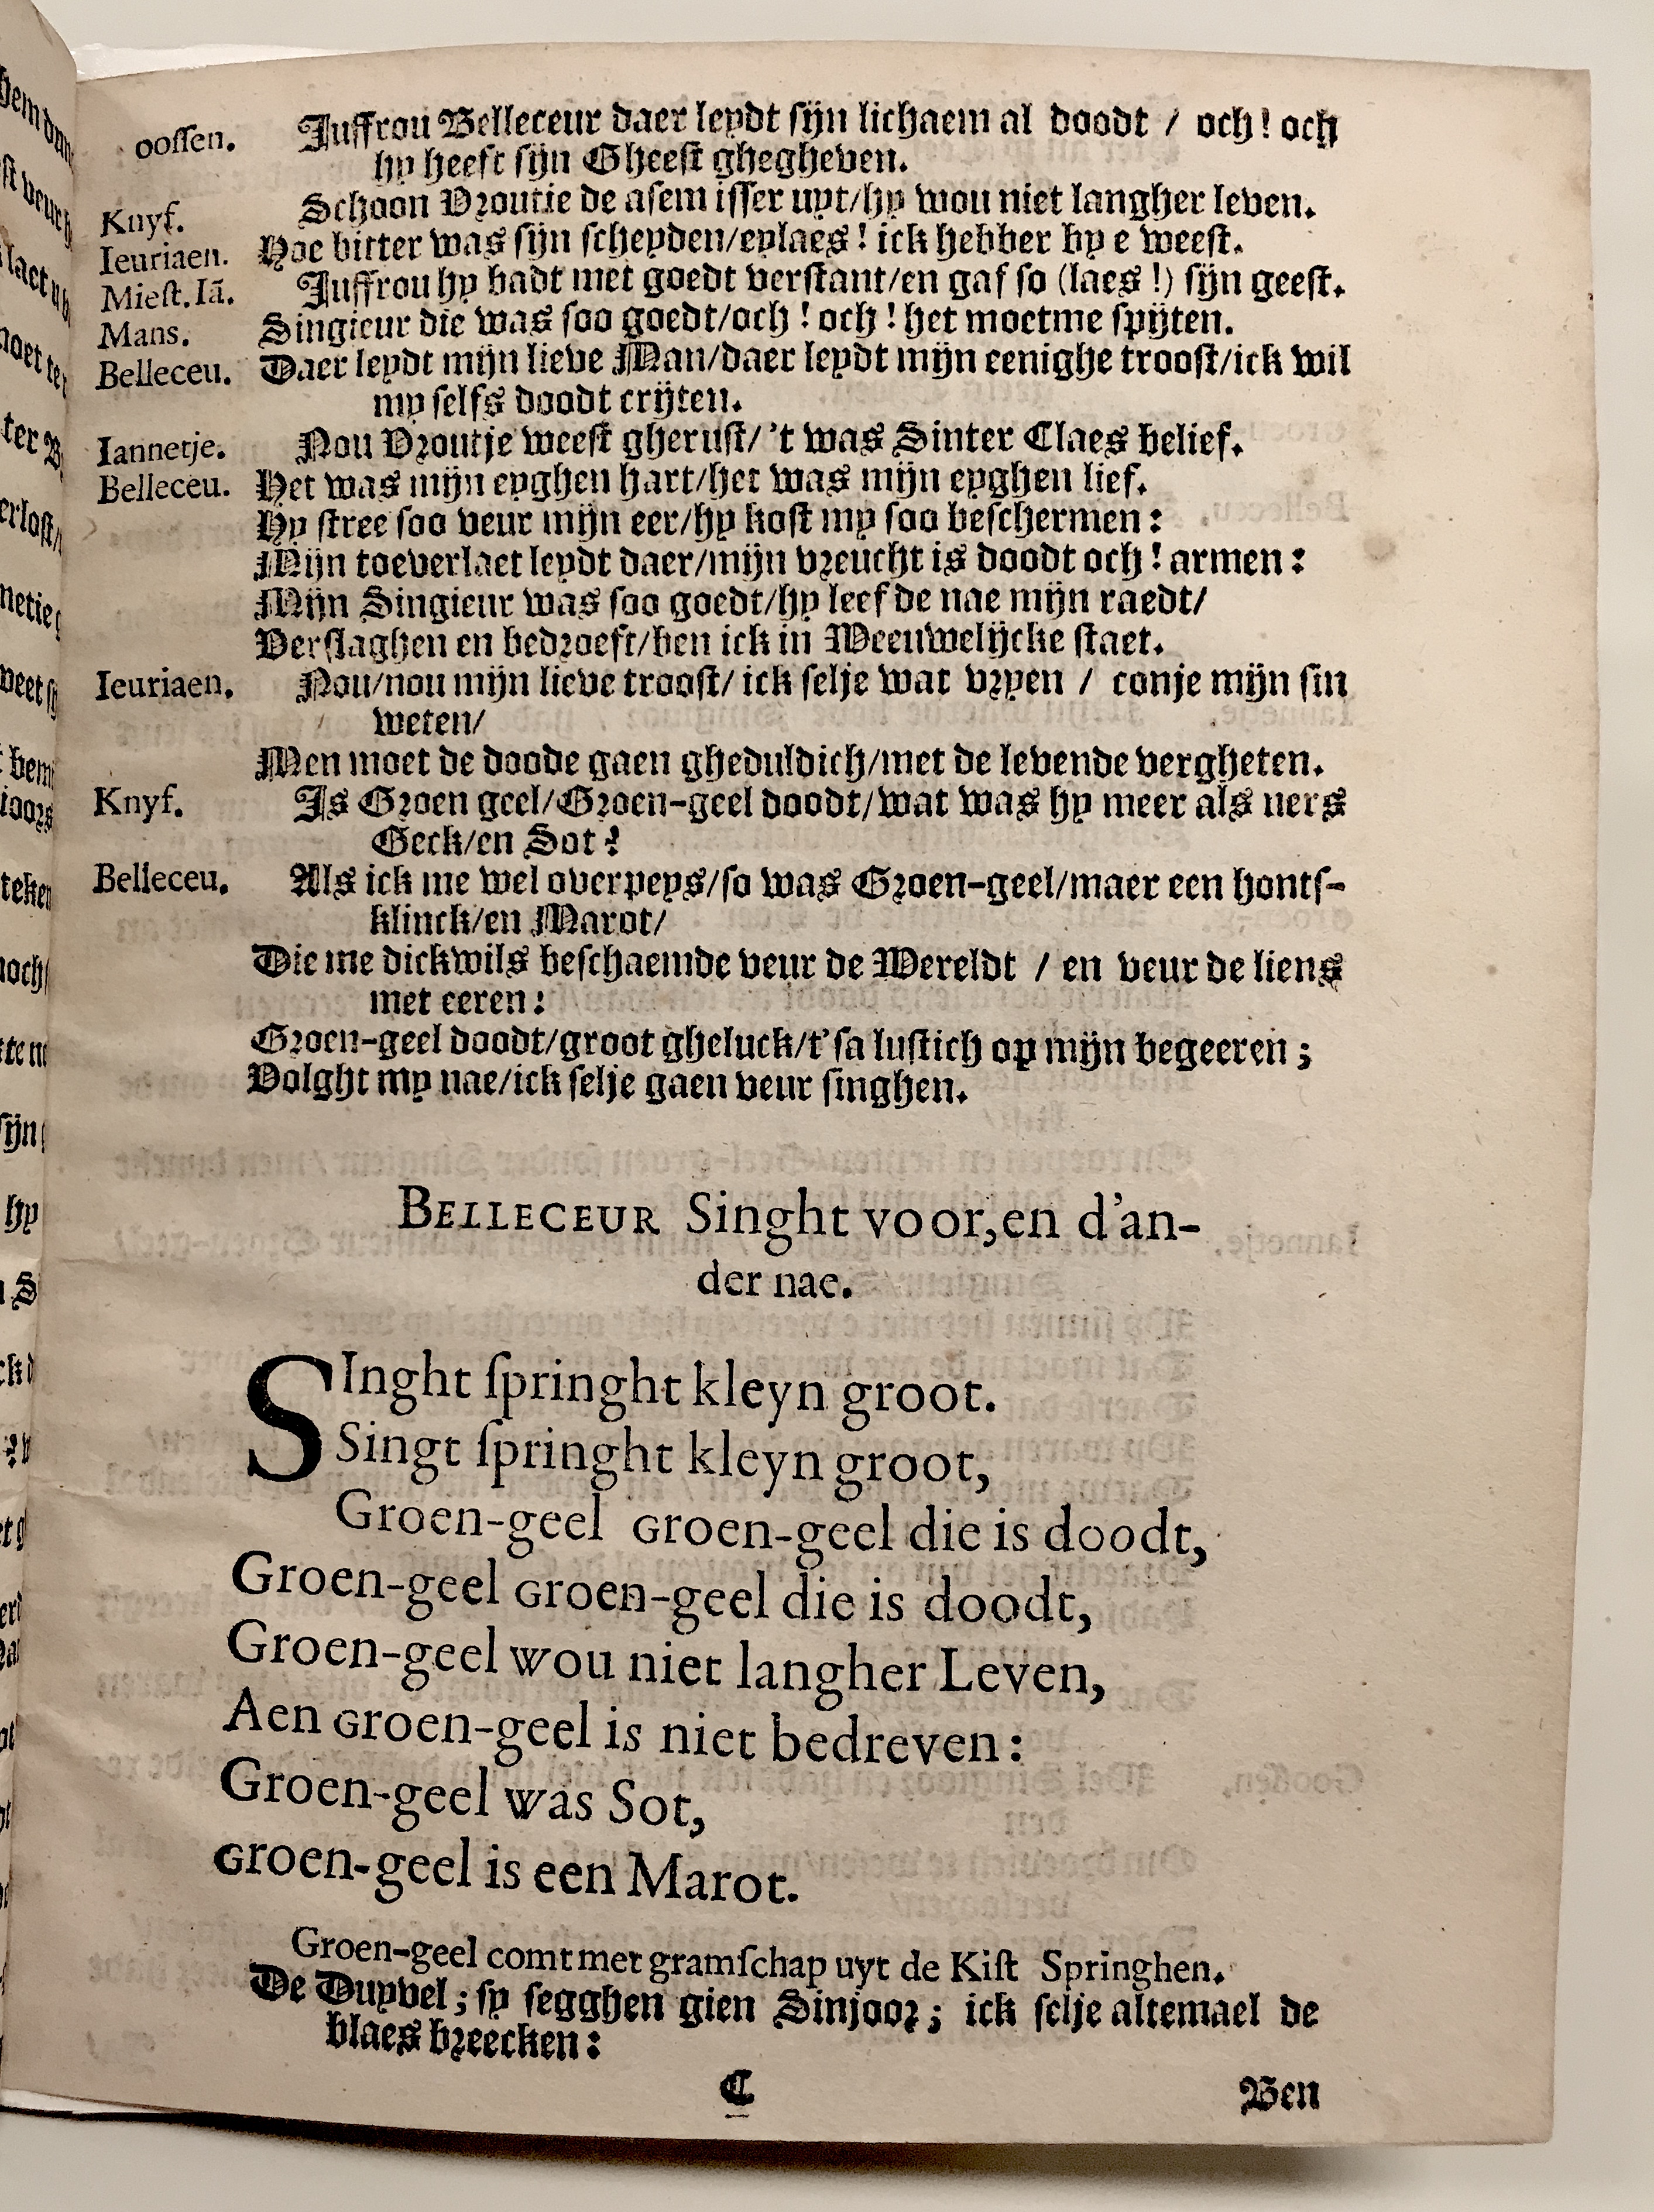 oossen. Juffrou Belleceur daer leydt sijn lichaem al doodt / och! och
hy heeft sijn Gheest ghegheven.
Knyf. Schoon Vroutie de asem isser uyt/hy wou niet langher leven.
Ieuriaen. Hoe bitter was sijn scheyden/eylaes! ick hebber by e weest.
Miest. Iã. Juffrou hy badt met goedt verstant/en gaf so (laes!) sijn geest.
Mans. Singieur die was soo goedt/och! och! het moetme spijten.
Belleceu. Daer leydt mijn lieve Man/daer leydt mijn eenighe troost/ick wil
my selfs doodt crijten.
Iannetje. Nou Vroutje weest gherust/'t was Sinter Claes belief.
Belleceu. Het was mijn eyghen hart/het was mijn eyghen lief.
Hy stree soo veur mijn eer/hy kost my soo beschermen:
Mijn toeverlaet leydt daer/mijn vreucht is doodt och! armen:
Mijn Singieur was soo goedt/hy leef de nae mijn raedt/
Verslaghen en bedroeft/ben ick in Weeuwelijcke staet.
Ieuriaen. Nou/nou mijn lieve troost/ick selje wat vryen / conje mijn sin
weten/
Men moet de doode gaen gheduldich/met de levende vergheten.
Knyf. Is Groen geel/Groen-geel doodt/wat was hy meer als uers
Geck/en Sot?
Belleceu. Als ick me wel overpeys/so was Groen-geel/maer een honts-
klinck/en Marot/
Die me dickwils beschaemde veur de Wereldt / en veur de liens
met eeren:
Groen-geel doodt/groot gheluck/t'sa lustich op mijn begeeren;
Volght my nae/ick selje gaen veur singhen.
BELLECEUR Singht voor,en d'an-
der nae.
SInght springht kleyn groot.
Singt springht kleyn groot,
Groen-geel Groen-geel die is doodt,
Groen-geel Groen-geel die is doodt,
Groen-geel wou niet langher Leven,
Aen Groen-geel is niet bedreven:
Groen-geel was Sot,
Groen-geel is een Marot.
Groen-geel comt met gramschap uyt de Kist Springhen.
De Duyvel; sy segghen gien Sinjoor; ick selje altemael de
blaes breecken:
C
Ben